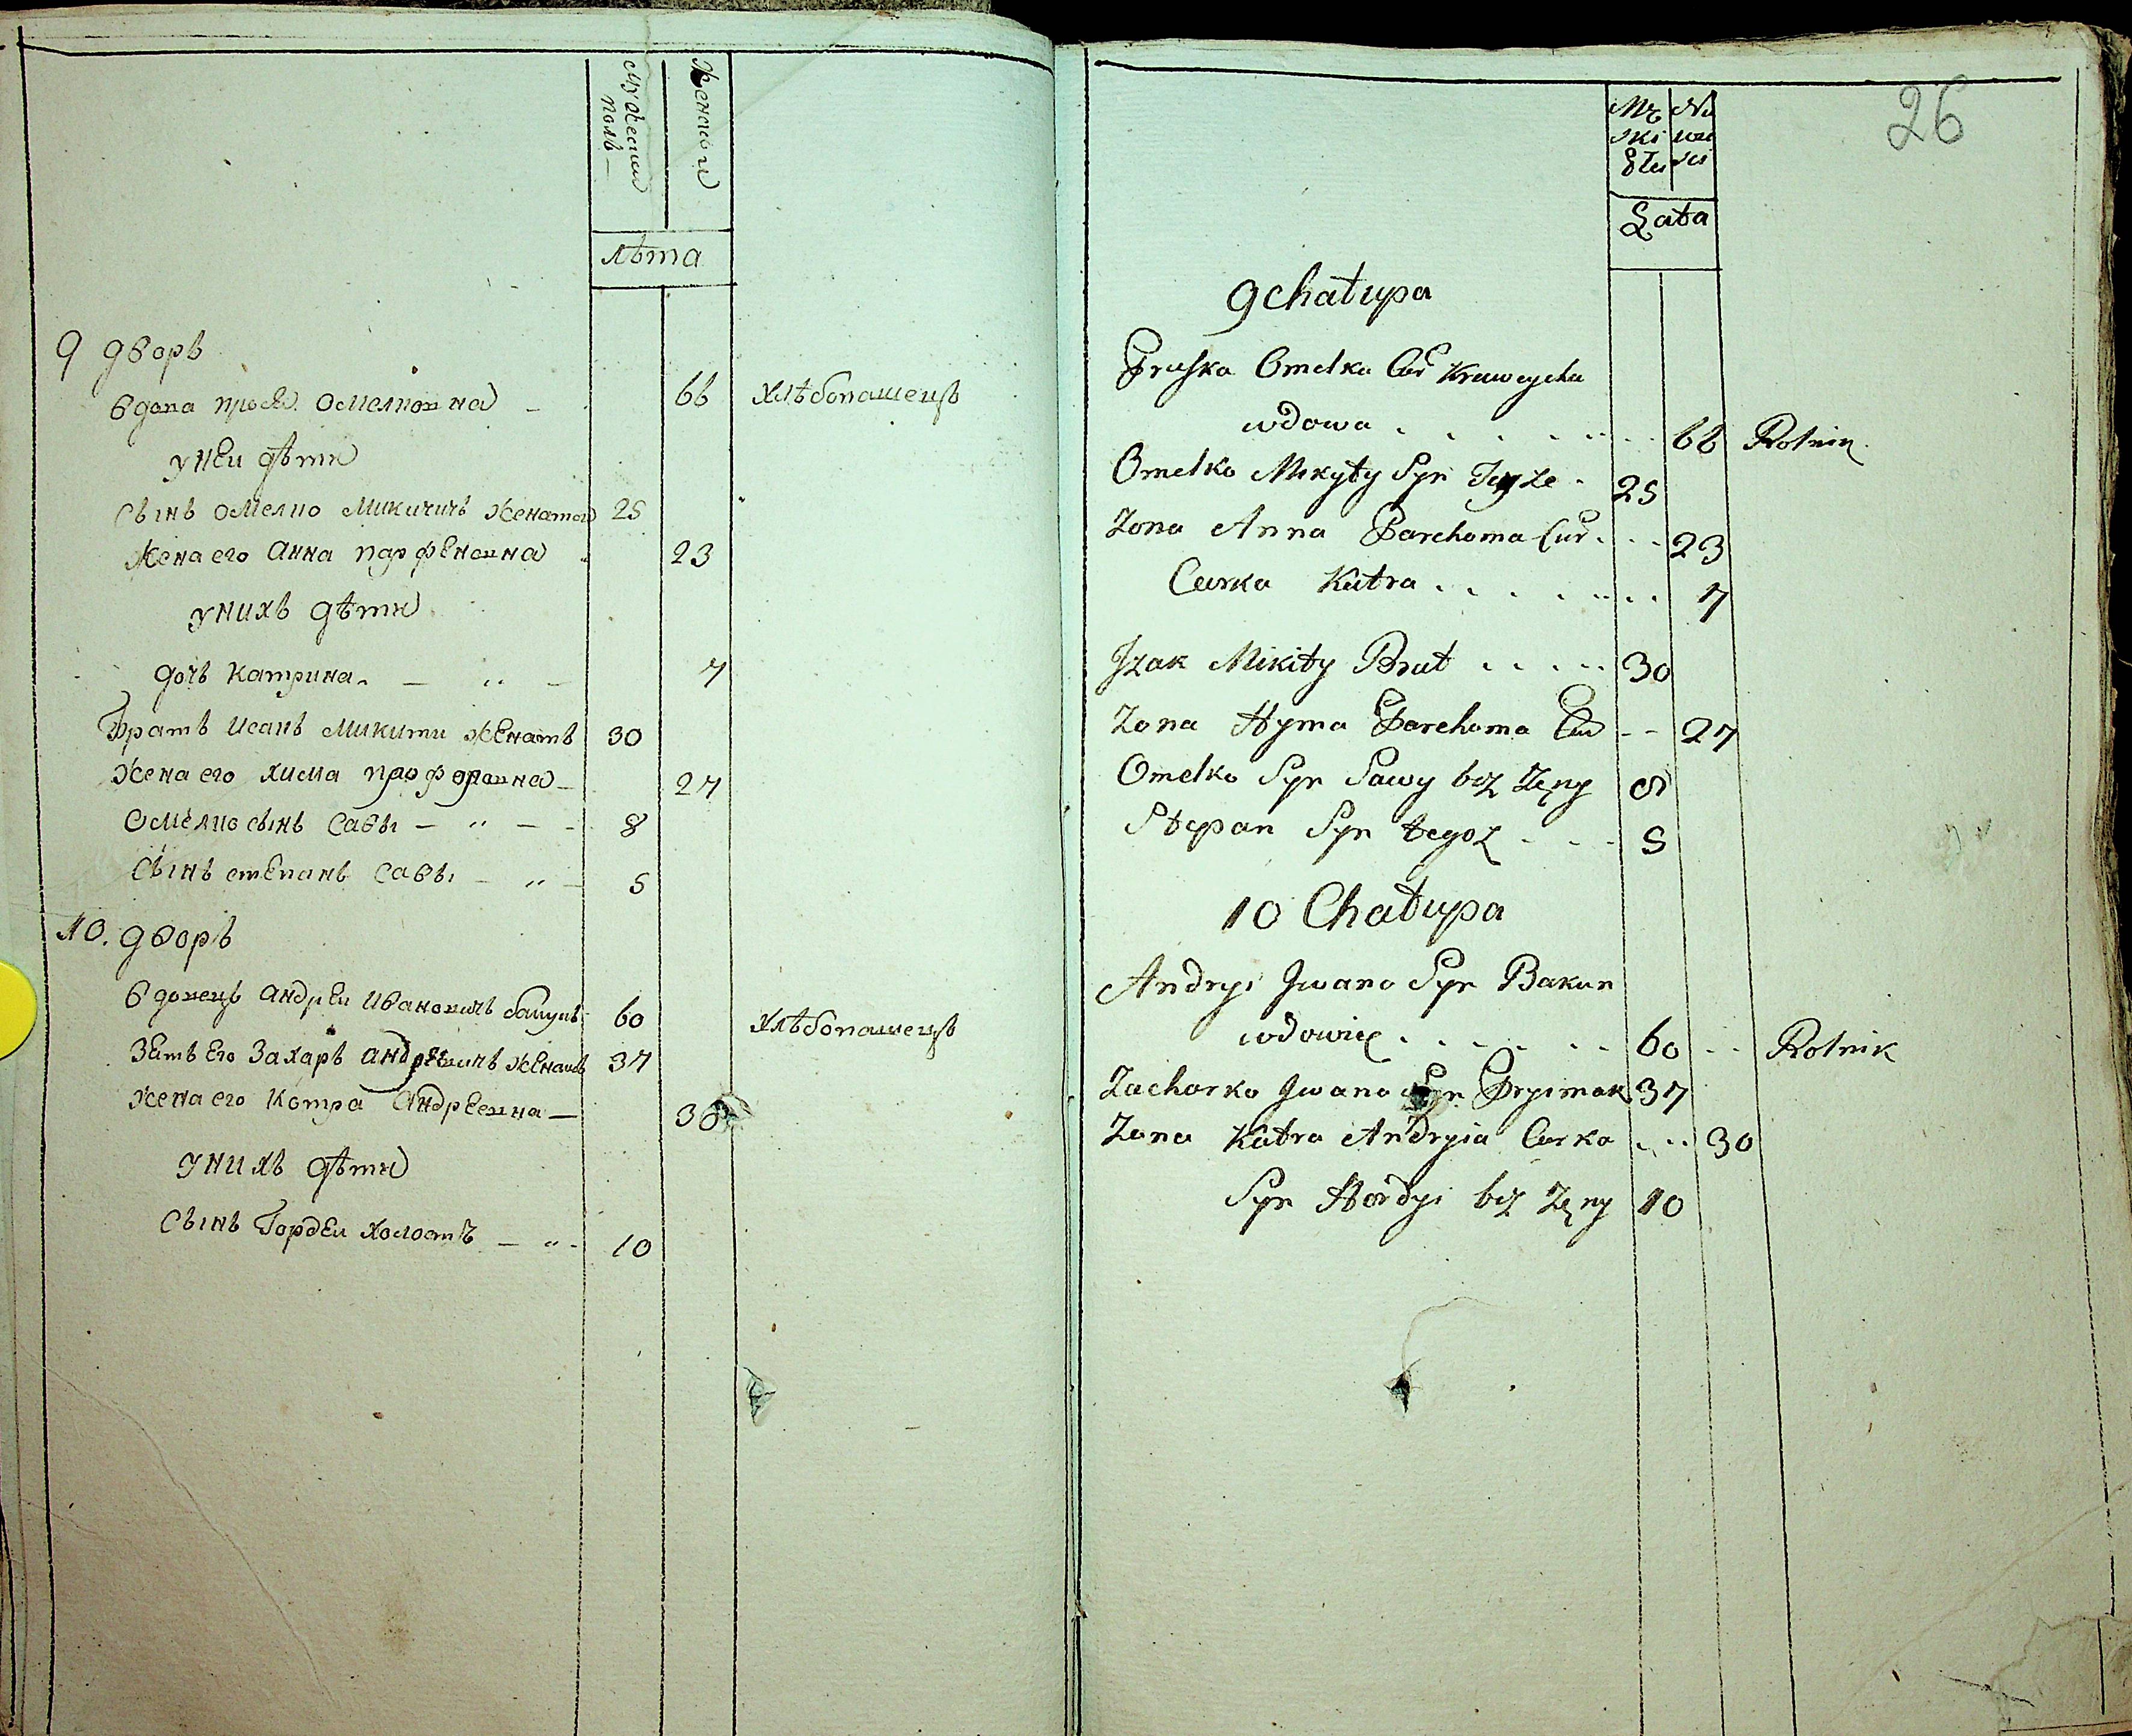 Мужеска
полъ
Женской
лѣта
9 дворъ
вдова прося Омелковна 66 Хлѣбопашецъ
у ней дѣти
сынъ Омелко Микитичъ женатой 25
Жена его Анна парфеновна 23
у нихъ дѣти
дочь Катрина 7
Братъ Исакъ Микити женатъ 30
Жена его Хима парфоновна 27
Омелко сынъ Савы 8
Сынъ степанъ Савы 5
10. дворъ
вдовецъ Андрей Ивановичъ бакунъ 60 Хлѣбопашецъ
Зять Его Захаръ женатъ 37
Жена его Котра Андреевна 30
у нихъ дѣти
Сынъ Гордей холостъ 10
26
Mę Nie
ski wie
Płci ści
Lata
9 Chałupa
Pruska Omelka Cur Krawczycha
wdowa . . . . . . 66 Rolnik
Omelko Mikyty Syn Teyże . 25
Zona Anna Parchoma Cur . . . 23
Curka Katra . . . . . . . 7
Izak Mikity Brat . . . . . 30
Zona Hyma Parchoma Cur - - 27
Omelko Syn Sawy bez Zęny 8
Stepan Syn tegoz . . . 5
10 Chałupa
Andryi Jwana Syn Bakun
wdowiec . . . . . . 60 . . Rolnik
Zacharko Jwana Syn Pryimak 37
Zona Katra Andryia Curka . . . 30
Syn Hordyi bez Zęny 10